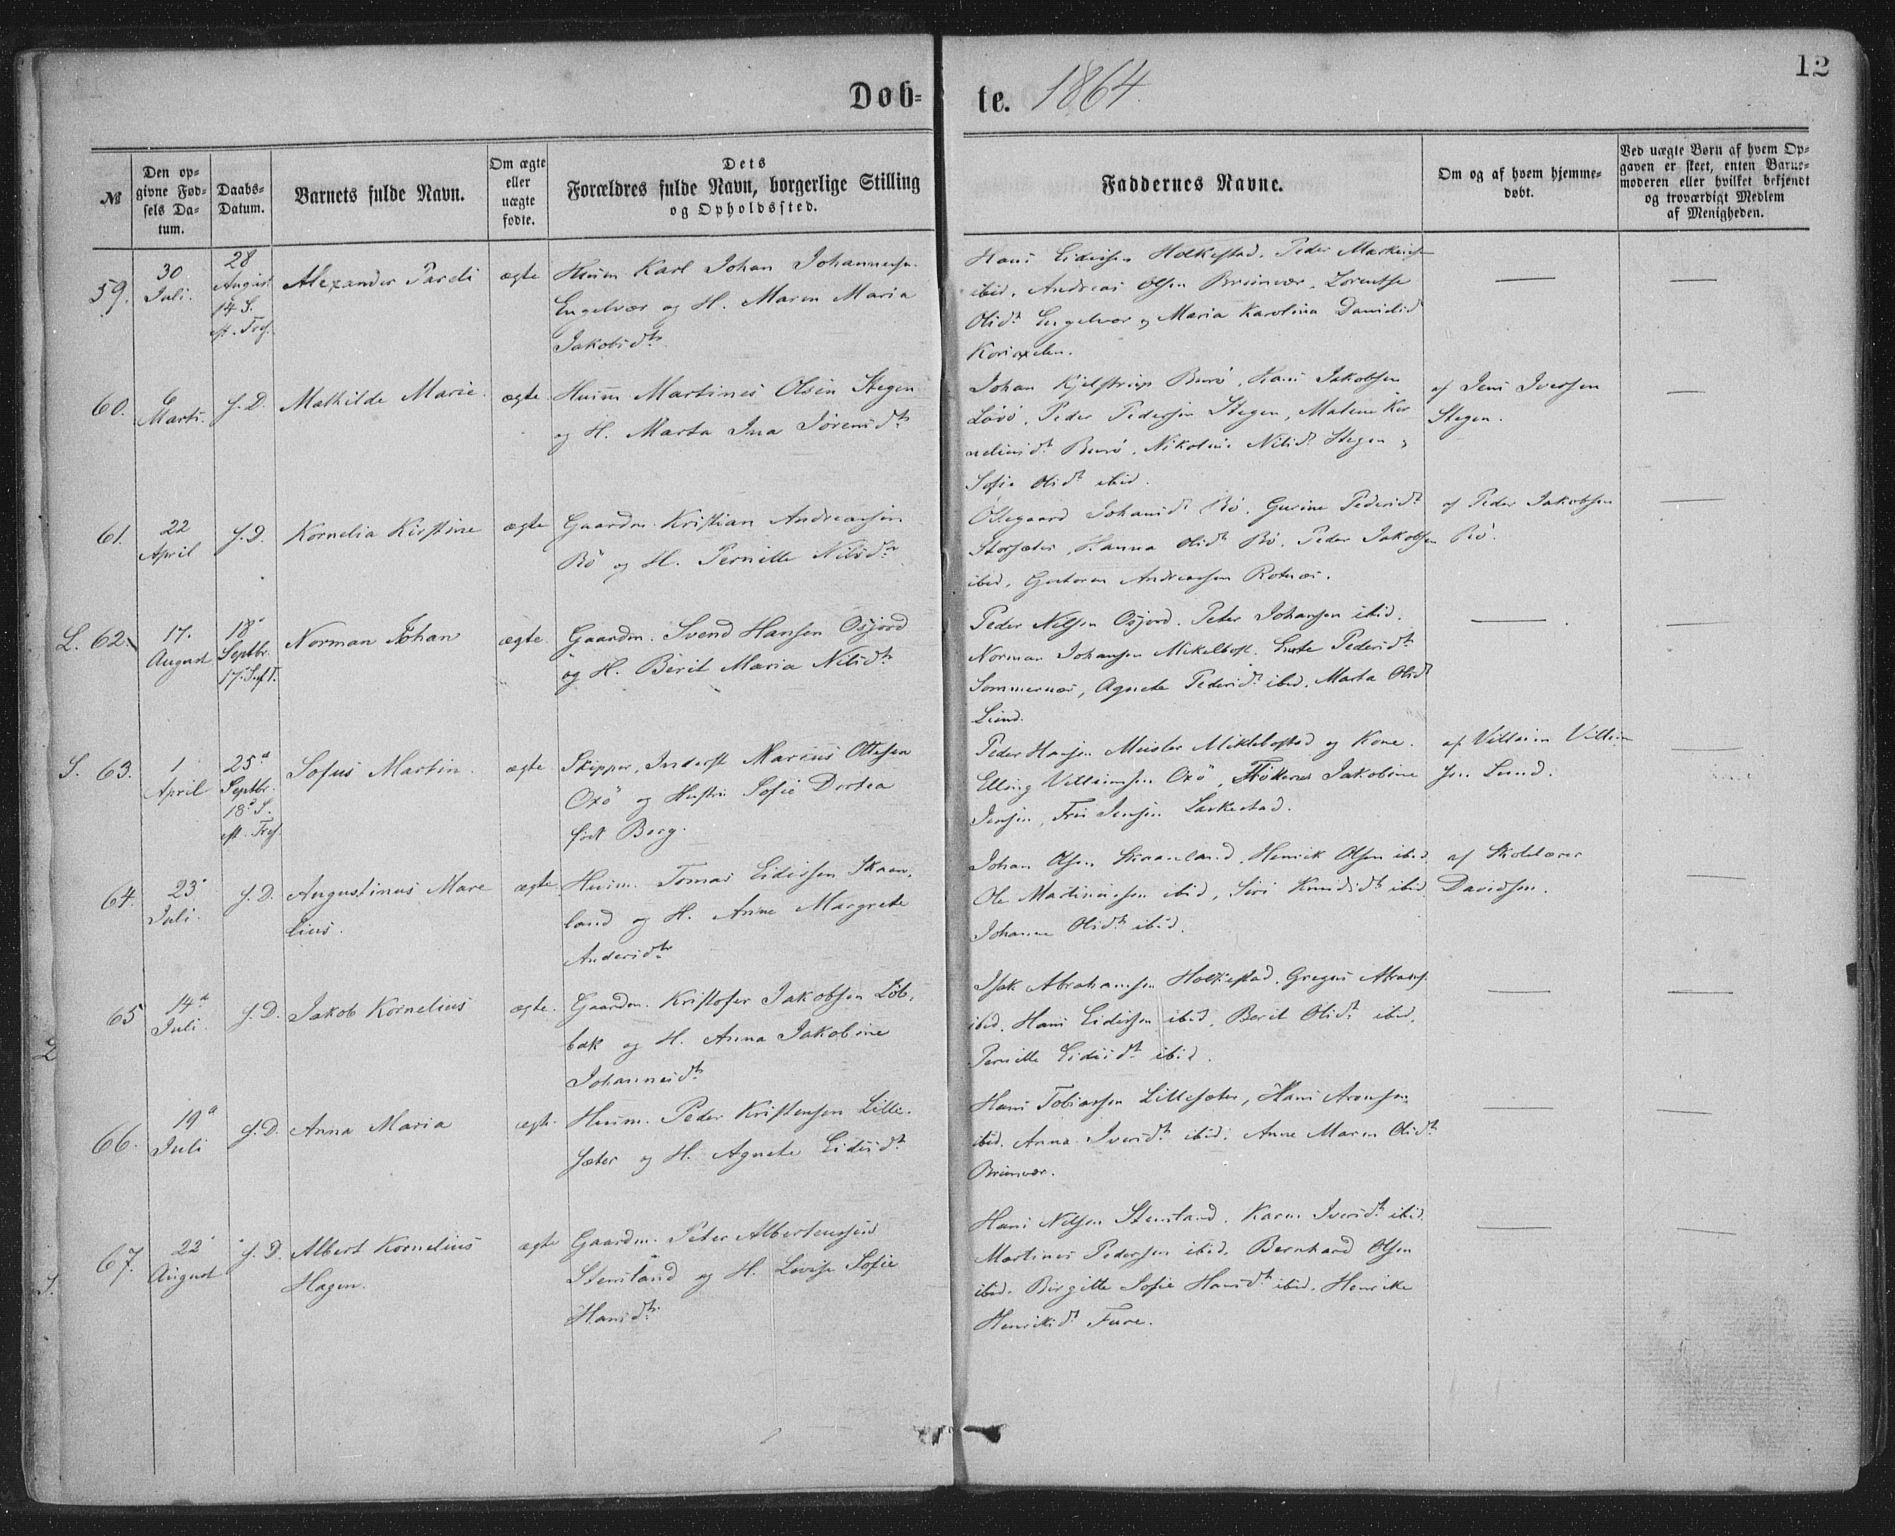 12
Døb-te. 1864.
№
Den opgivne Fødsels Datum.
Daabs-Datum.
Barnets fulde Navn.
Om ægte eller uægte fødte.
Dets Forældres fulde Navn, borgerlige Stilling og Opholdssted.
Faddernes Navne.
Om og af hvem hjemmedøbt.
Ved uægte Børn af hvem Opgaven er skeet, enten Barnemoderen eller hvilket bekjendt og troværdigt Medlem af Menigheden.
59.
30 Juli.
28 August 14 S. eft. Tref.
Alexander
ægte
Huusm Karl Johan Johannesen
Engelvær og H. Maren Maria
Jakobsdtr
Hans Eidissen Holkestad, Peder
ibid, Andreas Olsen Brunvær, Lorentse
Olsdt Engelvær og Maria Karolina Danielsd
60.
6 Marts.
s. D.
Mathilde Marie.
ægte.
Huusm Martines Olsen Stegen
og H. Marta Ina Sørensdtr
Johan Kjelstrup Burø, Hans Jakobsen
Løvø, Peder Pedersen Stegen, Malene Kor
neliusdt Burø, Nikoline Nilsdt Stegen,
Sofie Olsdt ibid.
af Jens Iversen
Stegen.
61.
22 April
s. D.
Kornelia Kirstine
ægte
Gaardm. Kristian Andreassen
Bö og H. Pernille Nilsdtr
Johansdt Bö, Gurine Pedersdt
Storsæter, Hanna Olsdt Bö, Peder Jakobsen
ibid, Andreassen Rotnæs.
af Peder Jakobsen
Bö.
L. 62.
17. August
18' Septbr. 17. S. e. T.
Norman Johan
ægte.
Gaardm. Svend Hansen Osjord
og H. Berit Maria Nilsdtr
Peder Nilsen Osjord, Peter Johansen ibid.
Norman Johansen Mikelbost. Pedersdt
Sommernæs, Agnete Pedersdt ibid, Marta Olsdt
Lund.
S. 63.
1 April
25d Septbr. 18d S. eft. Tref.
Sofus Martin.
ægte
Skipper, Inderst Marcus Ottesen
Oxö og Hustru Sofie Drotea
født Borg.
Peder Hansen Meister Miklebostad og Kone.
Elling Villumsen Oxö, Jakobine
Jensen, Jensen Laskestad.
af Villum Villum
sen Lund.
64.
23' Juli.
s. D.
Augustinus Mare
lius.
ægte
Huusm. Tomas Eidissen Skaan,
land og H. Anne Margrete
Andersdtr
Johan Olsen Skaanland, Henrik Olsen ibid,
Ole Martinussen ibid, Siri Knudsdt ibid
Johanne Olsdt ibid.
af Skolelærer
Davidsen.
65
14d Juli.
s. D.
Jakob Kornelius
ægte.
Gaardm. Kristofer Jakobsen Løb,
bak og H. Anna Jakobine
Johannesdtr
Isak Abrahamsen Holkestad, Gregus
ibid, Hans Eidissen ibid, Berit Olsdt ibid,
Pernille Eidisdt ibid.
66.
19d Juli
s. D.
Anna Maria
ægte
Huusm. Peder Kristensen Lille.
sæter og H. Agnete Eidisdt
Hans Tobiassen Lillesæter, Hans Aronsen
ibid, Anna Iversdt ibid, Anne Maren Olsdt
Brunvær.
67.
22' August
s. D.
Albert Kornelius
Hagen.
ægte
Gaardm. Peter Albertenssen
Stensland og H. Lovise Sofie
Hansdtr
Hans Nilsen Stensland, Karen Iversdt ibid
Martines Pedersen ibid, Bernhard Olsen
ibid, Birgitte Sofie Hansdt ibid, Henrike
Henriksdt Fure.